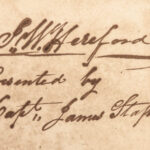 J. W. Hereford
resented by
Capt., James Stap